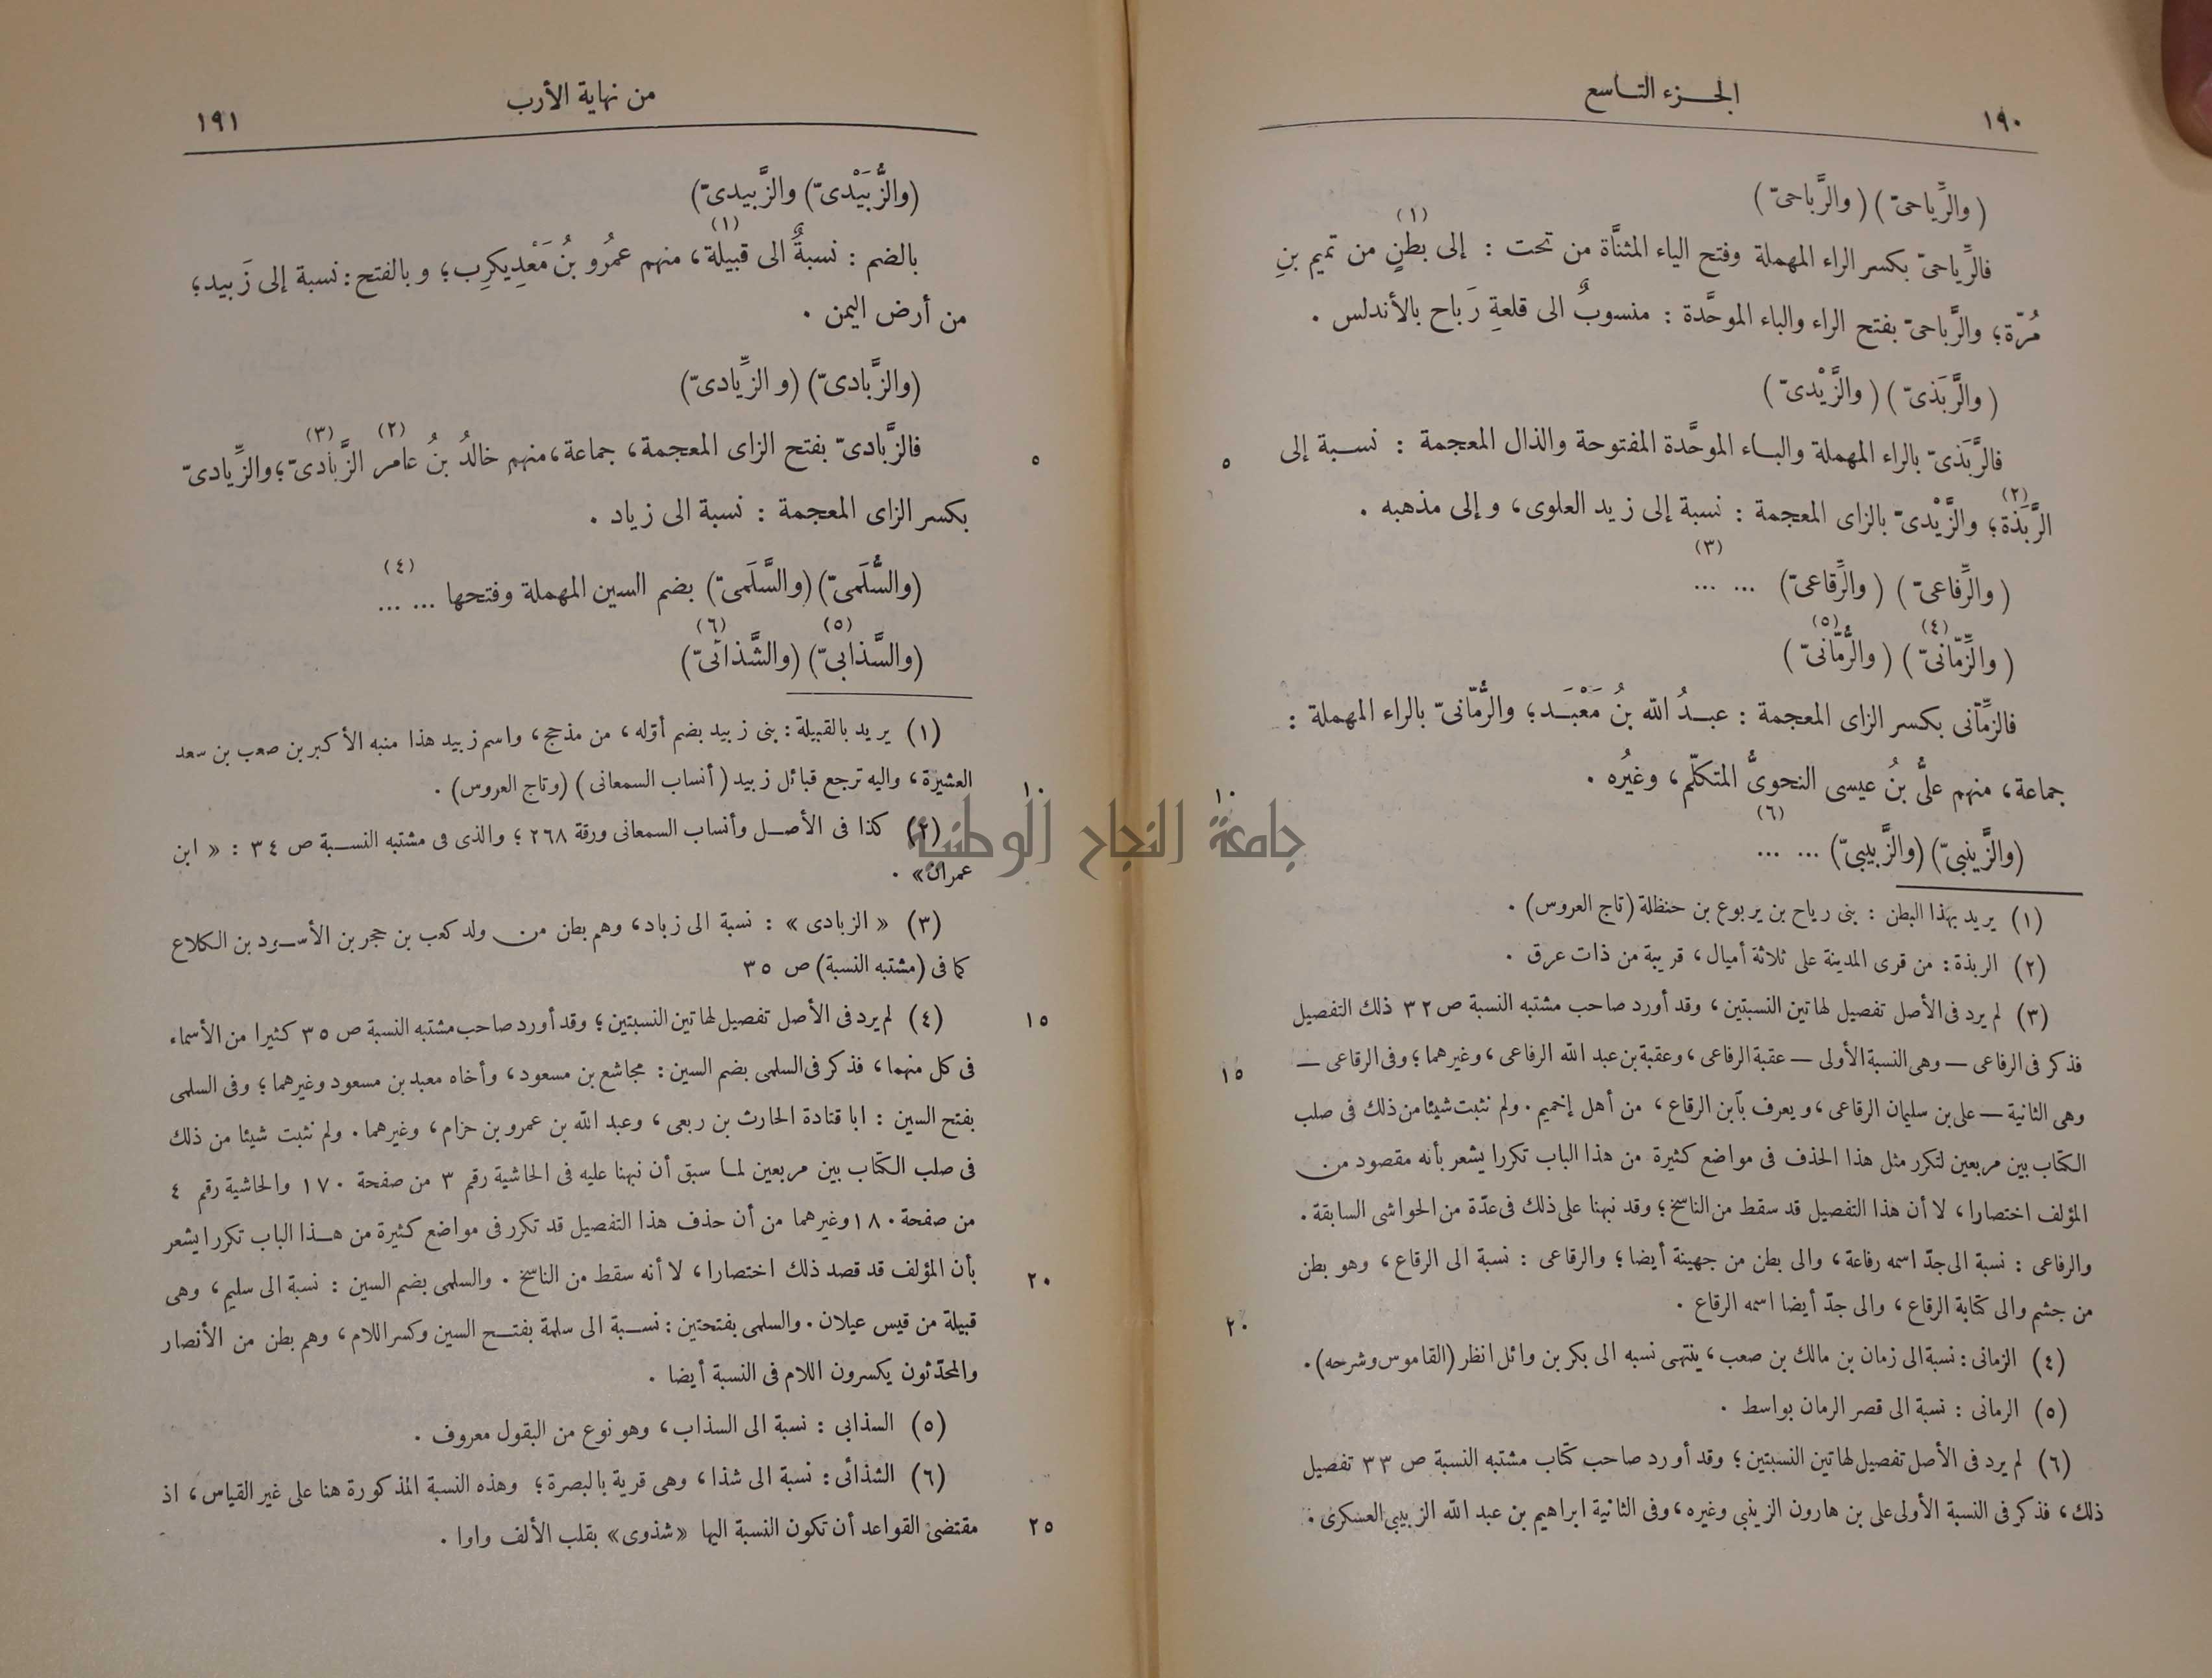 ١٩٠
الجـــزء التـاسع
( والرِّياحىّ ) ( والرَّباحىّ )
فالرِّياحىّ بكسر الراء المهملة وفتح الياء المثنَّاة من تحت : إلى بَطْنٍ (١) من تميم بنِ
مُرّة؛ والرَّباحىّ بفتح الراء والباء الموحَّدة : منسوبٌ الى قلعةِ رَباح بالأندلس .
( والرَّبَذىّ ) ( والزَّيْدىّ )
فالرَّبَذىّ بالراء المهملة والبـاء الموحَّدة المفتوحة والذال المعجمة : نسـبة إلى
٥
الرَّبَذة (٢)؛ والزَّيْدىّ بالزاى المعجمة : نسبة إلى زيد العلوى، وإلى مذهبه .
( والرِّفاعىّ ) ( والرِّقاعىّ ) ... ... (٣)
( والزِّمّانىّ (٤) ) ( والرُّمّانىّ (٥) )
فالزِّمّانى بكسر الزاى المعجمة : عبـدُ الله بنُ مَعْبَـد؛ والرُّمّانىّ بالراء المهملة :
جماعة، منهم علىُّ بنُ عيسى النحوىُّ المتكلّم، وغيرُه .
١٠
(والزَّينبىّ) (والزَّبيبىّ) ... ... (٦)
(١) يريد بهذا البطن : بنى رياح بن يربوع بن حنظلة (تاج العروس) .
(٢) الربذة : من قرى المدينة على ثلاثة أميال، قريبة من ذات عرق .
(٣) لم يرد فى الأصل تفصيل لهاتين النسبتين، وقد أورد صاحب مشتبه النسبة ص ٣٢ ذلك التفصيل
فذكر فى الرفاعى — وهى النسبة الأولى — عقبة الرفاعى، وعقبة بن عبد الله الرفاعى، وغيرهما؛ وفى الرقاعى —
١٥
وهى الثانية — على بن سليمان الرقاعى، ويعرف بآبن الرقاع، من أهل إخميم . ولم نثبت شيئا من ذلك فى صلب
الكتاب بين مربعين لتكرر مثل هذا الحذف فى مواضع كثيرة من هذا الباب تكررا يشعر بأنه مقصود من
المؤلف اختصارا، لا أن هذا التفصيل قد سقط من الناسخ؛ وقد نبهنا على ذلك فى عدّة من الحواشى السابقة .
والرفاعى : نسبة الى جدّ اسمه رفاعة، والى بطن من جهينة أيضا؛ والرقاعى : نسبة الى الرقاع، وهو بطن
من جشم والى كتابة الرقاع، والى جدّ أيضا اسمه الرقاع .
٢٠
(٤) الزمانى : نسبة الى زمان بن مالك بن صعب، ينتهى نسبه الى بكر بن وائل انظر (القاموس وشرحه) .
(٥) الرمانى : نسبة الى قصر الرمان بواسط .
(٦) لم يرد فى الأصل تفصيل لهاتين النسبتين؛ وقد أورد صاحب كتاب مشتبه النسبة ص ٣٣ تفصيل
ذلك، فذكر فى النسبة الأولى على بن هارون الزينبى وغيره، وفى الثانية ابراهيم بن عبد الله الزبيبى العسكرى .
من نهاية الأرب
١٩١
(والزُّبَيْدىّ) (والزَّبيدىّ)
بالضم : نسبةٌ الى قبيلة (١)، منهم عمُرو بنُ مَعْدِيكرِب؛ وبالفتح : نسبة إلى زَبيد؛
من أرض اليمن .
(والزَّبادىّ) (والزِّيادىّ)
فالزَّبادىّ بفتح الزاى المعجمة، جماعة، منهم خالدُ بنُ عامر (٢) الزَّبادىّ (٣)؛ والزِّيادىّ
٥
بكسر الزاى المعجمة : نسبة الى زياد .
(والسُّلَمىّ) (والسَّلَمىّ) بضم السين المهملة وفتحها ... ... (٤)
(والسَّذابىّ (٥)) (والشَّذائىّ (٦))
(١) يريد بالقبيلة : بنى زبيد بضم أوّله، من مذحج، واسم زبيد هذا منبه الأكبر بن صعب بن سعد
العشيرة، واليه ترجع قبائل زبيد (أنساب السمعانى) (وتاج العروس) .
١٠
(٢) كذا فى الأصـل وأنساب السمعانى ورقة ٢٦٨؛ والذى فى مشتبه النسـبة ص ٣٤ : « ابن
عمران» .
(٣) « الزبادى » : نسبة الى زباد، وهم بطن من ولد كعب بن حجر بن الأسـود بن الكلاع
كما فى (مشتبه النسبة) ص ٣٥
(٤) لم يرد فى الأصل تفصيل لهاتين النسبتين؛ وقد أورد صاحب مشتبه النسبة ص ٣٥ كثيرا من الأسماء
١٥
فى كل منهما، فذكر فى السلمى بضم السين : مجاشع بن مسعود، وأخاه معبد بن مسعود وغيرهما؛ وفى السلمى
بفتح السين : ابا قتادة الحارث بن ربعى، وعبد الله بن عمرو بن حزام، وغيرهما . ولم نثبت شيئا من ذلك
فى صلب الكتاب بين مربعين لمـا سبق أن نبهنا عليه فى الحاشية رقم ٣ من صفحة ١٧٠ والحاشية رقم ٤
من صفحة ١٨٠ وغيرهما من أن حذف هذا التفصيل قد تكرر فى مواضع كثيرة من هـذا الباب تكررا يشعر
بأن المؤلف قد قصد ذلك اختصارا، لا أنه سقط من الناسخ . والسلمى بضم السين : نسبة الى سليم، وهى
٢٠
قبيلة من قيس عيلان . والسلمى بفتحتين : نسـبة الى سلمة بفتـح السين وكسر اللام، وهم بطن من الأنصار
والمحدّثون يكسرون اللام فى النسبة أيضا .
(٥) السذابى : نسبة الى السذاب، وهو نوع من البقول معروف .
(٦) الشذائى : نسبة الى شذا، وهى قرية بالبصرة؛ وهذه النسبة المذكورة هنا على غير القياس، اذ
مقتضى القواعد أن تكون النسبة اليها «شذوى» بقلب الألف واوا .
٢٥
جامعة النجاح الوطنية